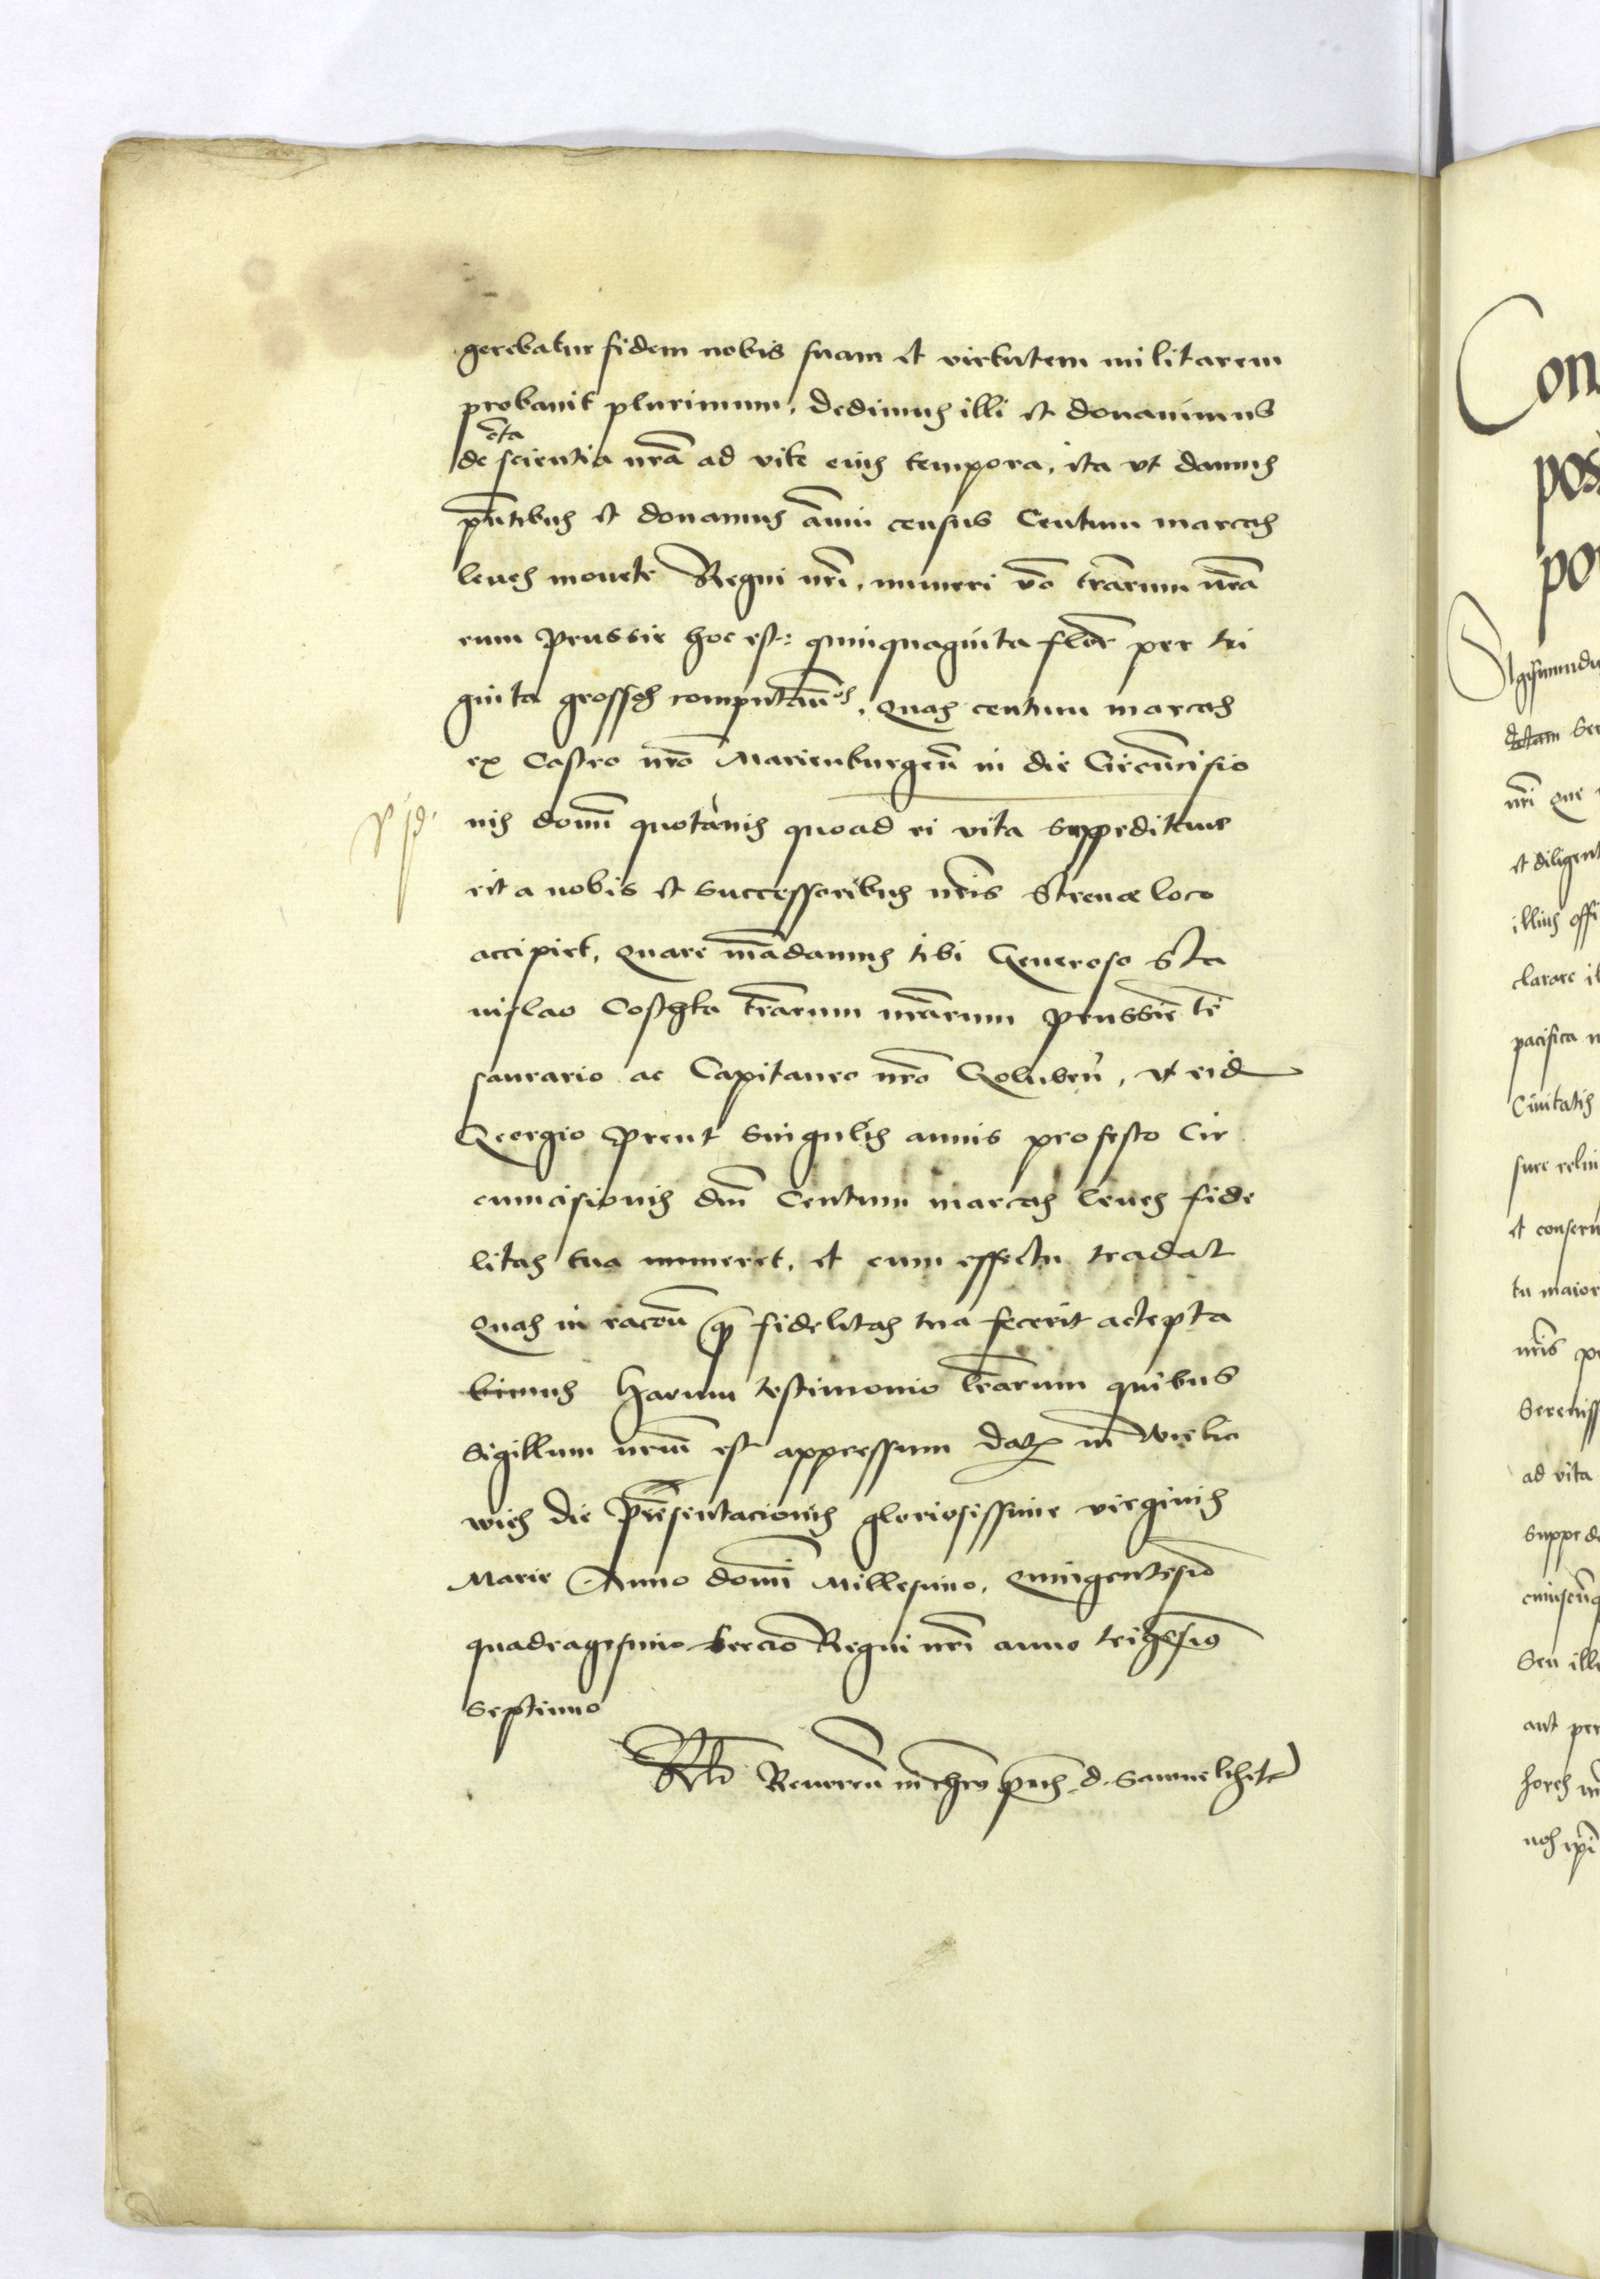 gerebatur fidem nobis suam et virtutem militarem
probavit plurimum, dedimus illi et donavimus
c̄ta
de scientia nrã ad vite eius tempora, ita ut damus
pñtibus et donamus ãnui census Centum marcas
leves monete Regni nrĩ, numeri võ trãrum nrã
rum Prussie hoc est: quinquaginta flor per tri
ginta grossos computãn̄os, Quas centum marcas
ex Castro nrõ Marienburgeñ in die Circũcisio
nis domĩ quotãnis quoad ei vita suppeditaue
rit a nobis et successoribus nrĩs Strenæ loco
accipiet, Quare mãdamus tibi Generoso Sta
nislao Costhka trãrum nrãrum Prussie te
saurario ac Capitaneo nrõ Golubeñ, ut eid
Georgio Prent Singulis annis pro festo Cir
cumcisionis dñi Centum marcas leves fide
litas tua numeret, et cum effectu tradat
Quas in racoñ fidelitas tua fecerit accepta
bimus Harum testimonio lrãrum quibus
Sigillum nrũm est appressum Dat in Wielic
wies die Presentacionis gloriosissime virginis
Marie Anno domĩ Millesimo, Quingentesĩo
quadragesimo tercio Regni nrĩ anno trigesĩo
Septimo
Rlõ Reverẽn in chrõ pris d. Samuelis etc
Con
pos
po
Sigismundu
dictam Ser
nrĩ que
et diligent
illius offi
clarare il
pacifica
Civitatis
sure relin
et conserv
tu maior
nrĩs pe
Sereniss
ad vita
Suppedi
cuiuscũq
Seu ille
aut per